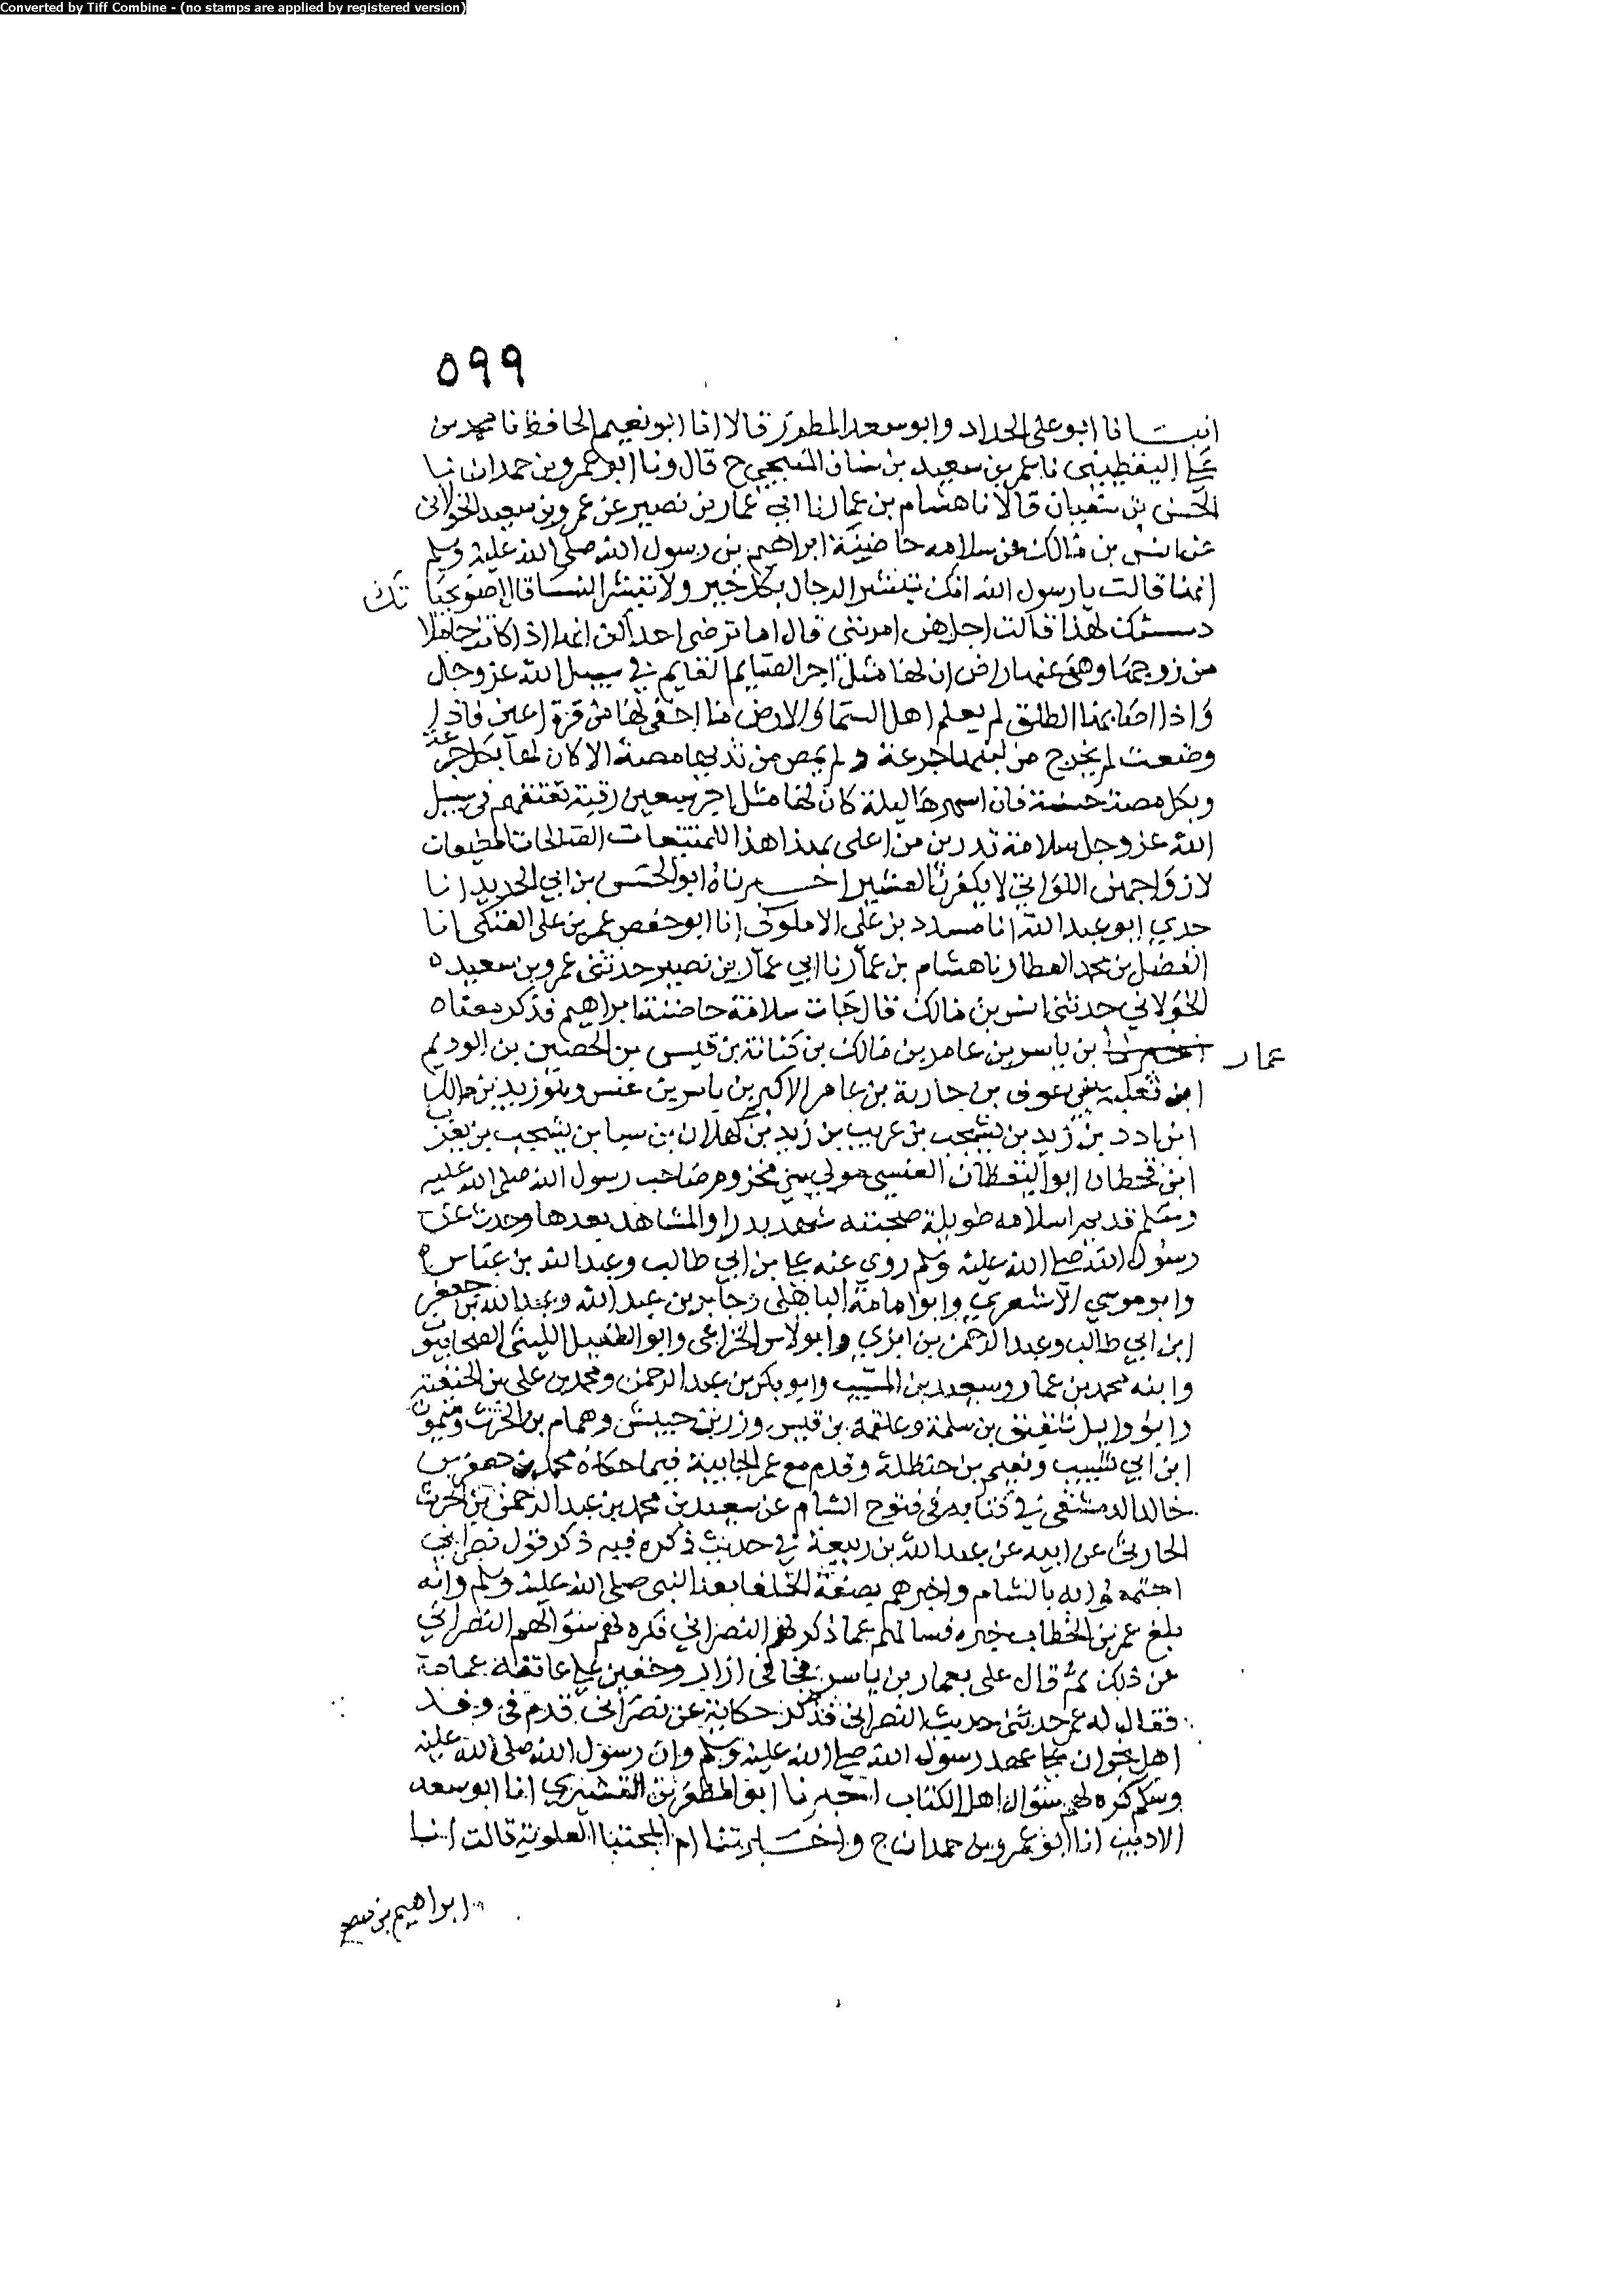 Converted by Tiff Combine - (no stamps are applied by registered version)
٥٩٩
انبانا ابو علي الحداد وابو سعد المطرز قالا انا ابو نعيم الحافظ نا محمد بن
علي اليقطيني نا عمر بن سعيد بن سنان المنبجي ح قال ونا ابو عمرو بن حمدان نا
الحسن بن سفيان قالا نا هشام بن عمار نا ابي عمار بن نصير عن عمرو بن سعيد الخولاني
عن انس بن مالك عن سلامه حاضنة ابراهيم بن رسول الله صلى الله عليه وسلم
انها قالت يا رسول الله انك تبشر الرجال بكل خير ولا تبشر النسا قال اصويحبا تك
دسسنك لهذا قالت اجل هن امرنني قال اما ترضى احداكن انها اذا كانت حاملا
من زوجها وهو عنها راض ان لها مثل اجر الصايم القايم في سبيل الله عز وجل
واذا اصابها الطلق لم يعلم اهل السما والارض ما اخفي لها من قرة اعين فاذا
وضعت لم يخرج من لبنها جرعة ولم يمص من ثديها مصة الا كان لها بكل جرعة
وبكل مصة حسنة فان اسهرها ليلة كان لها مثل اجر سبعين رقبة تعتقهم في سبيل
الله عز وجل سلامة تدرين من اعني بهذا هذا للمتنعمات الصالحات المطيعات
لازواجهن اللواتي لا يكفرن العشير اخبرناه ابو الحسن بن ابي الحديد انا
جدي ابو عبد الله انا مسدد بن علي الاملوكي انا ابو حفص عمر بن علي العتكي انا
الفضل بن محمد العطار نا هشام بن عمار نا ابي عمار بن نصير حدثني عمرو بن سعيد
الخولاني حدثني انس بن مالك قال جات سلامة حاضنة ابراهيم فذكر معناه
عمار بن ياسر بن عامر بن مالك بن كنانة بن قيس بن الحصين بن الوديم
ابن ثعلبة بن عوف بن حارثة بن عامر الاكبر بن يام بن عنس وهو زيد بن مالك
ابن ادد بن زيد بن يشجب بن عريب بن زيد بن كهلان بن سبا بن يشجب بن يعرب
ابن قحطان ابو اليقظان العنسي مولى بني مخزوم صاحب رسول الله صلى الله عليه
وسلم قديم اسلامه طويلة صحبته شهد بدرا والمشاهد بعدها وحدث عن
رسول الله صلى الله عليه وسلم روى عنه علي بن ابي طالب وعبد الله بن عباس
وابو موسى الاشعري وابو امامة الباهلي وجابر بن عبد الله وعبد الله بن جعفر
ابن ابي طالب وعبد الرحمن بن ابزي وابو لاس الخزاعي وابو الطفيل الليثي الصحابيون
وابنه محمد بن عمار وسعيد بن المسيب وابو بكر بن عبد الرحمن ومحمد بن علي بن الحنفية
وابو وايل شقيق بن سلمة وعلقمة بن قيس وزر بن حبيش وهمام بن الحرث وميمون
ابن ابي شبيب ونعيم بن حنظلة وقدم مع عمر الجابية فيما حكاه محمد بن جعفر بن
خالد الدمشقي في كتابه في فتوح الشام عن سعيد بن محمد بن عبد الرحمن بن الحرث
الحارثي عن ابيه عن عبد الله بن ربيعة في حديث ذكره فيه ذكر قول نصراني
اجتمعوا به بالشام واخبرهم بصفة الخلفا بعد النبي صلى الله عليه وسلم وانه
بلغ عمر بن الخطاب خبره فسالهم عما ذكر لهم النصراني فكره لهم سؤالهم النصراني
عن ذلك ثم قال علي بعمار بن ياسر فجا في ازار وخفين على عاتقه عمامة
فقال له عمر حدثني حديث النصراني فذكر حكاية عن نصراني قدم في وفد
اهل نجران على عهد رسول الله صلى الله عليه وسلم وان رسول الله صلى الله عليه
وسلم كره لهم سؤال اهل الكتاب اخبرنا ابو المظفر بن القشيري انا ابو سعد
الاديب انا ابو عمرو بن حمدان ح واخبرتنا ام المجتبا العلوية قالت انبا
ابراهيم بن